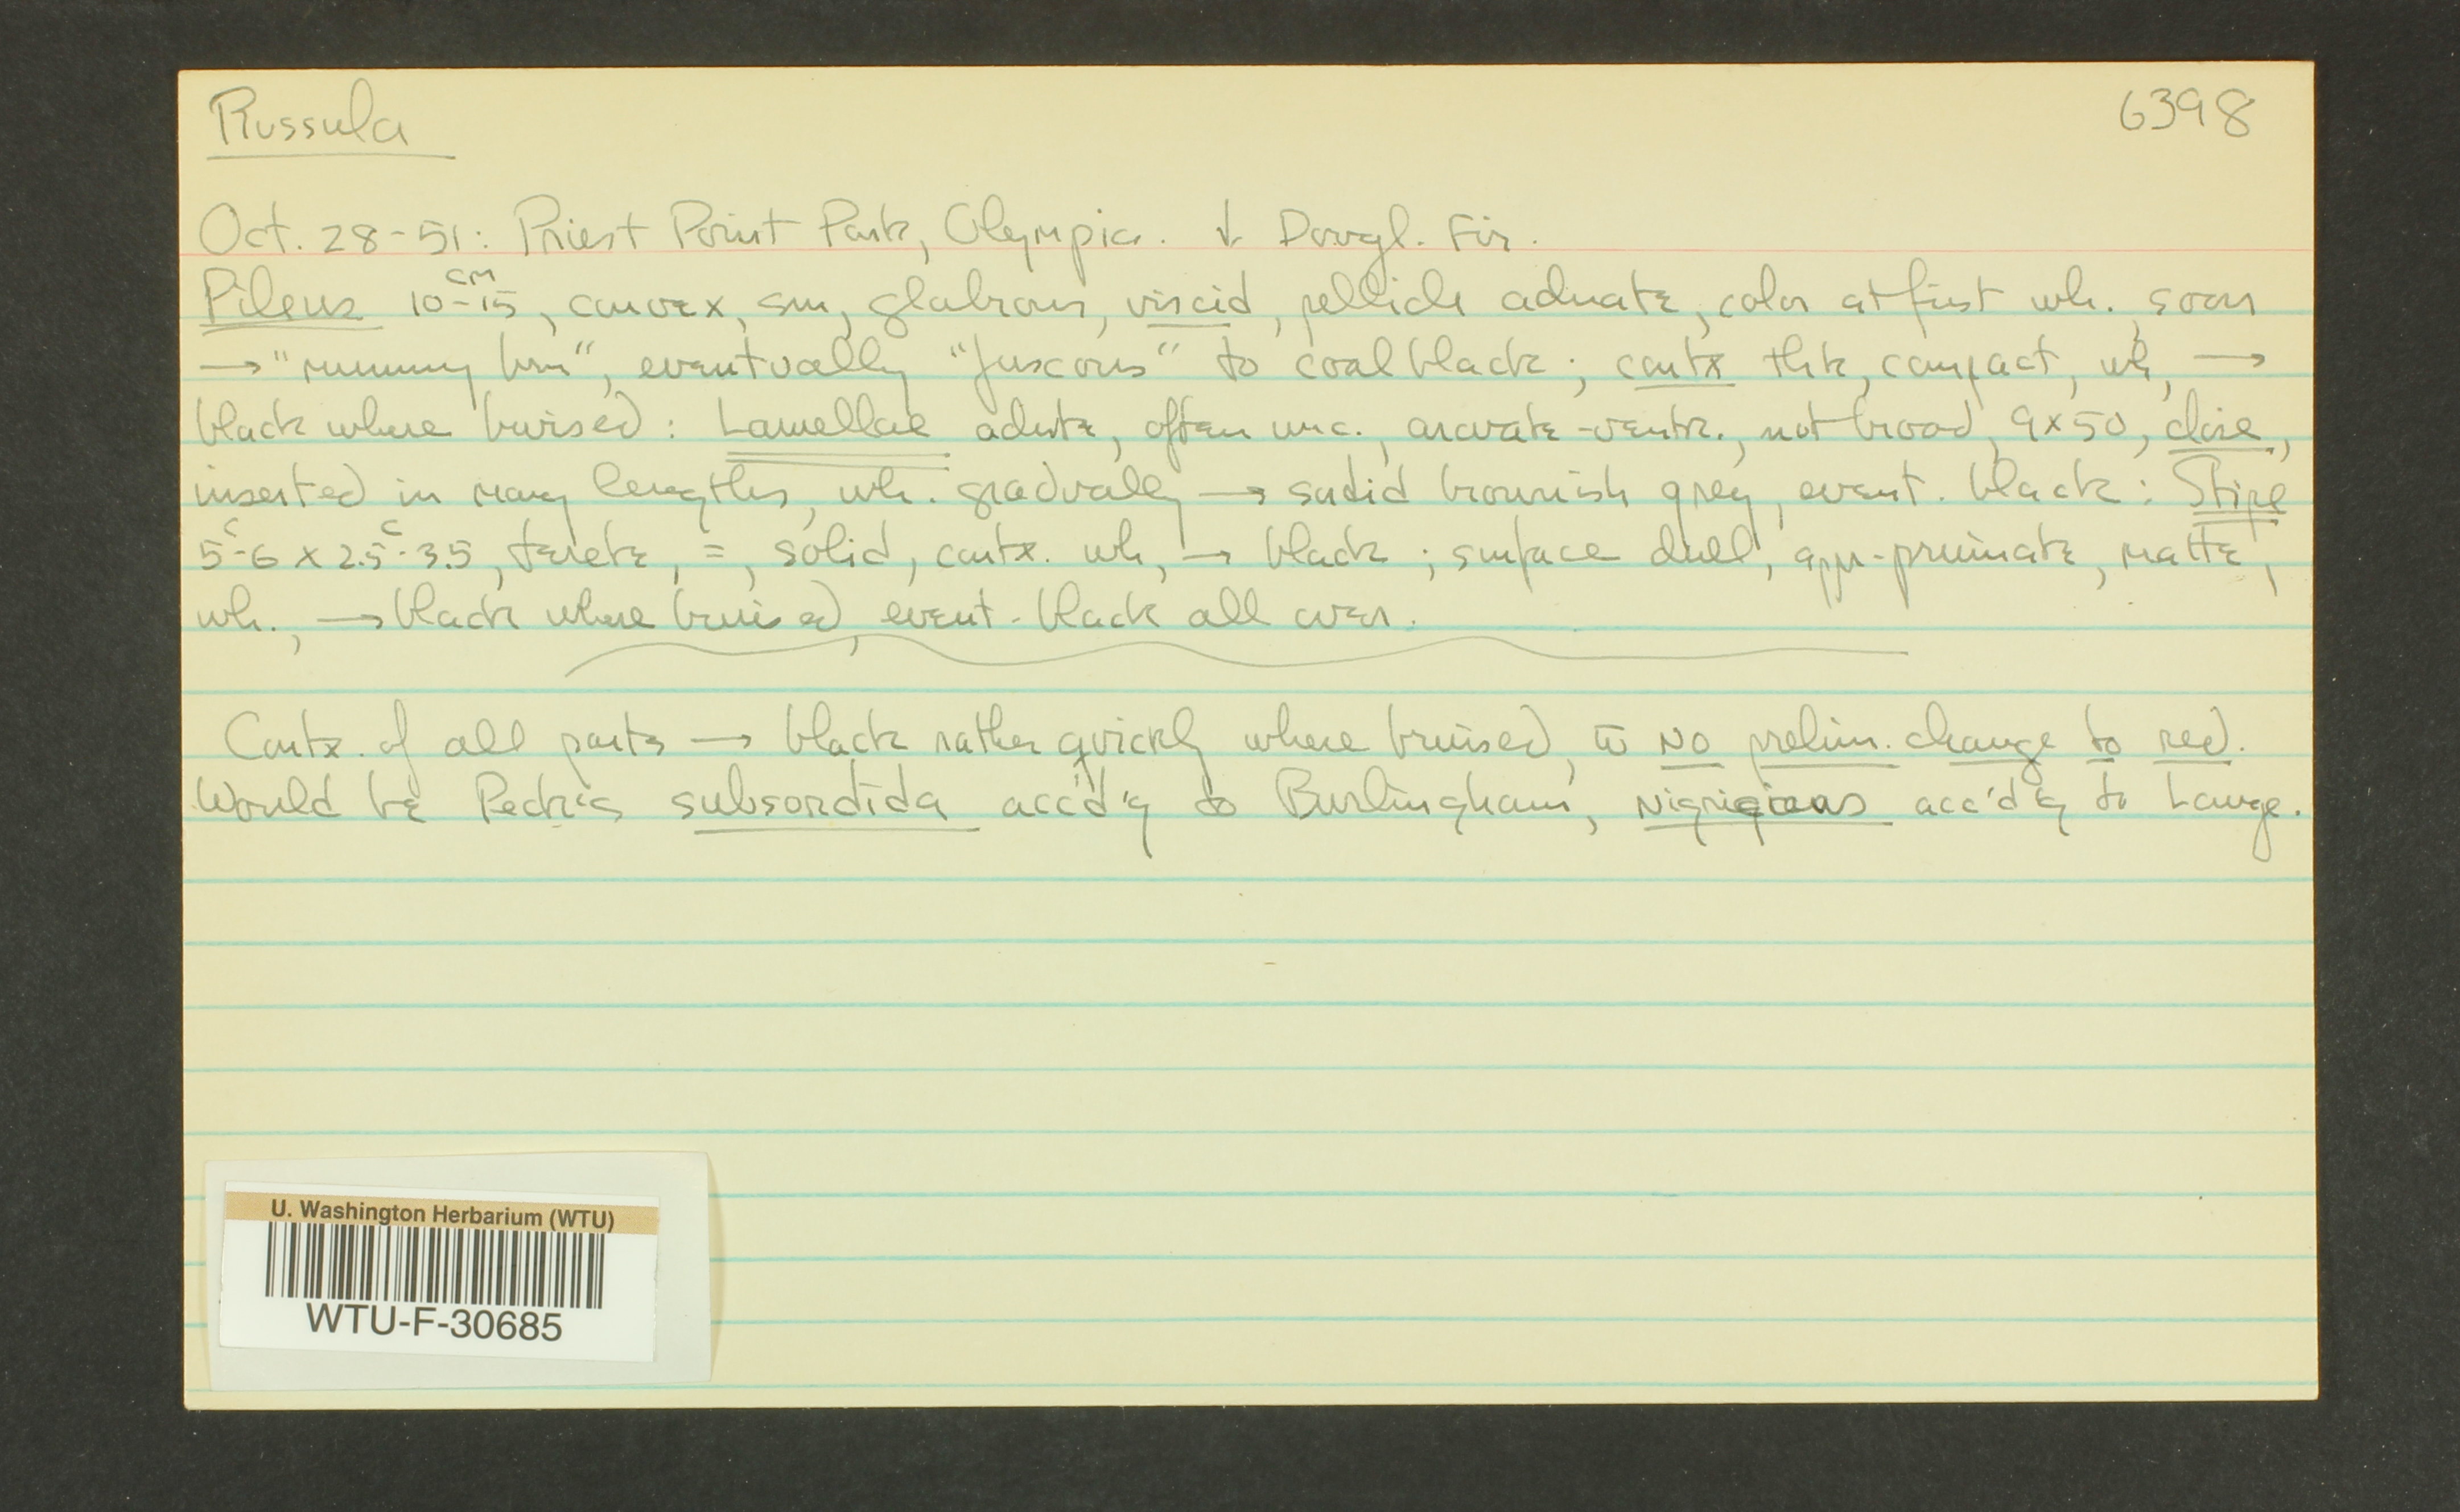 Russula
6398
Oct. 28-51: Priest Point Park, Olympia. ↓ Dougl. Fir.
Pileus 10-15 cm, convex, sm, glabrous, viscid, pellicle adnate, color at first wh., soon
→ "mummy brn", eventually "fuscous" to coal black; contx thk, compact, wh, →
black where bruised: Lamellae adnte, often unc., arcuate-ventr., not broad, 9x50, close,
inserted in many lengths, wh. gradually → sordid brownish grey, event. black: Stipe
5-6 c x 2.5-3.5 c, terete, =, solid, contx. wh, → black; surface dull, appr-pruinate, matte,
wh., → black where bruised, event. black all over.
Contx. of all parts → black rather quickly where bruised, w̄ NO prelim. change to red.
Would be Peck's subsordida acc'd'g to Burlingham, nigricans acc'd'g to Lange.
U. Washington Herbarium (WTU)
WTU-F-30685